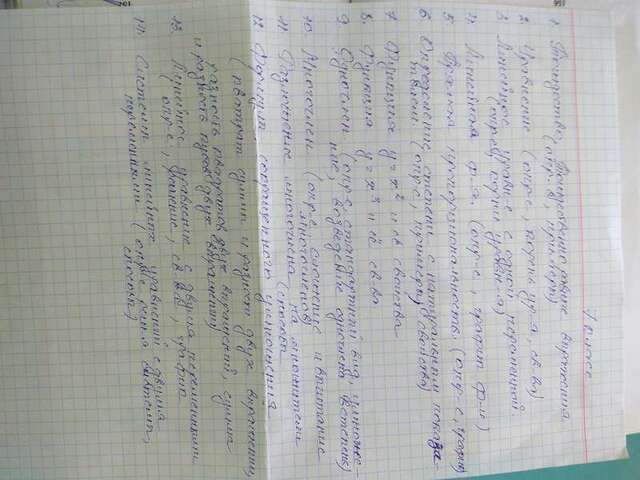 7 класс
1. Тождество, Тождественно равные выражения
(опр-е, примеры)
2. Уравнение (опр-е, корень ур-я, св-ва)
3. Линейное уравн-е с одной переменной.
(опр-е, корни уравн-я)
4. Линейная ф-я. (опр-е, график ф-и)
5. Прямая пропорциональность. (опр-е, график)
6 Определение степени с натуральным показа-
телем. (опр-е, примеры, свойства)
7 Функция y = x² и её свойства
8. Функция y = x³ и её св-ва
9. Одночлен (опр-е, стандартный вид, умноже-
ние, возведение одночлена в степень)
10. Многочлен (опр-е, сложение и вычитание
многочленов)
11. Разложение многочлена на множители
(способы)
12. Формулы сокращенного умножения
(квадрат суммы и разности двух выражений,
разность квадратов двух выражений, сумма
и разность кубов двух выражений)
13. Линейное уравнение с двумя переменными
(опр-е, решение, св-ва, график)
14. Системы линейных уравнений с двумя
переменными (опр-е, реш-я системы,
способы)